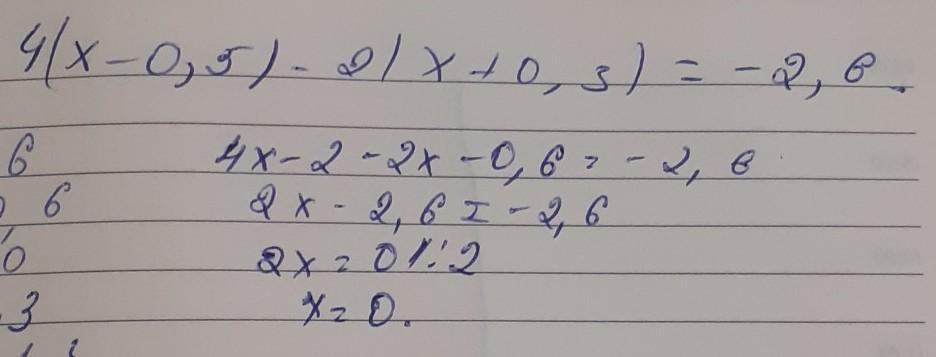 4(x-0,5)-2(x+0,3)=-2,6.
6 4x-2-2x-0,6=-2,6
6 2x-2,6=-2,6
0 2x=0 |:2
3 x=0.